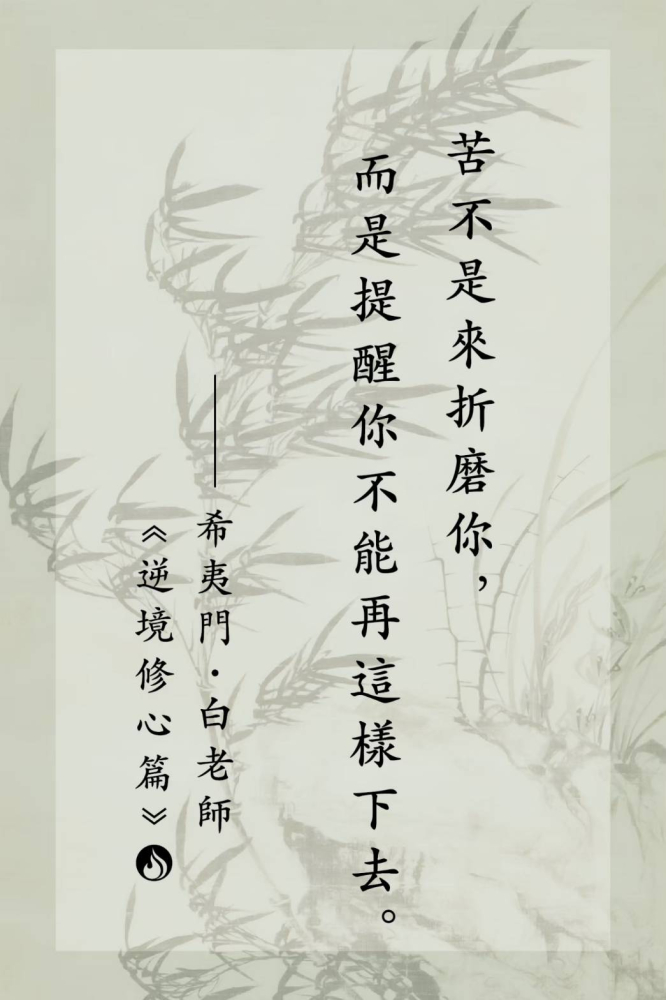 苦不是來折磨你，
而是提醒你不能再這樣下去。
——希夷門·白老師
《逆境修心篇》